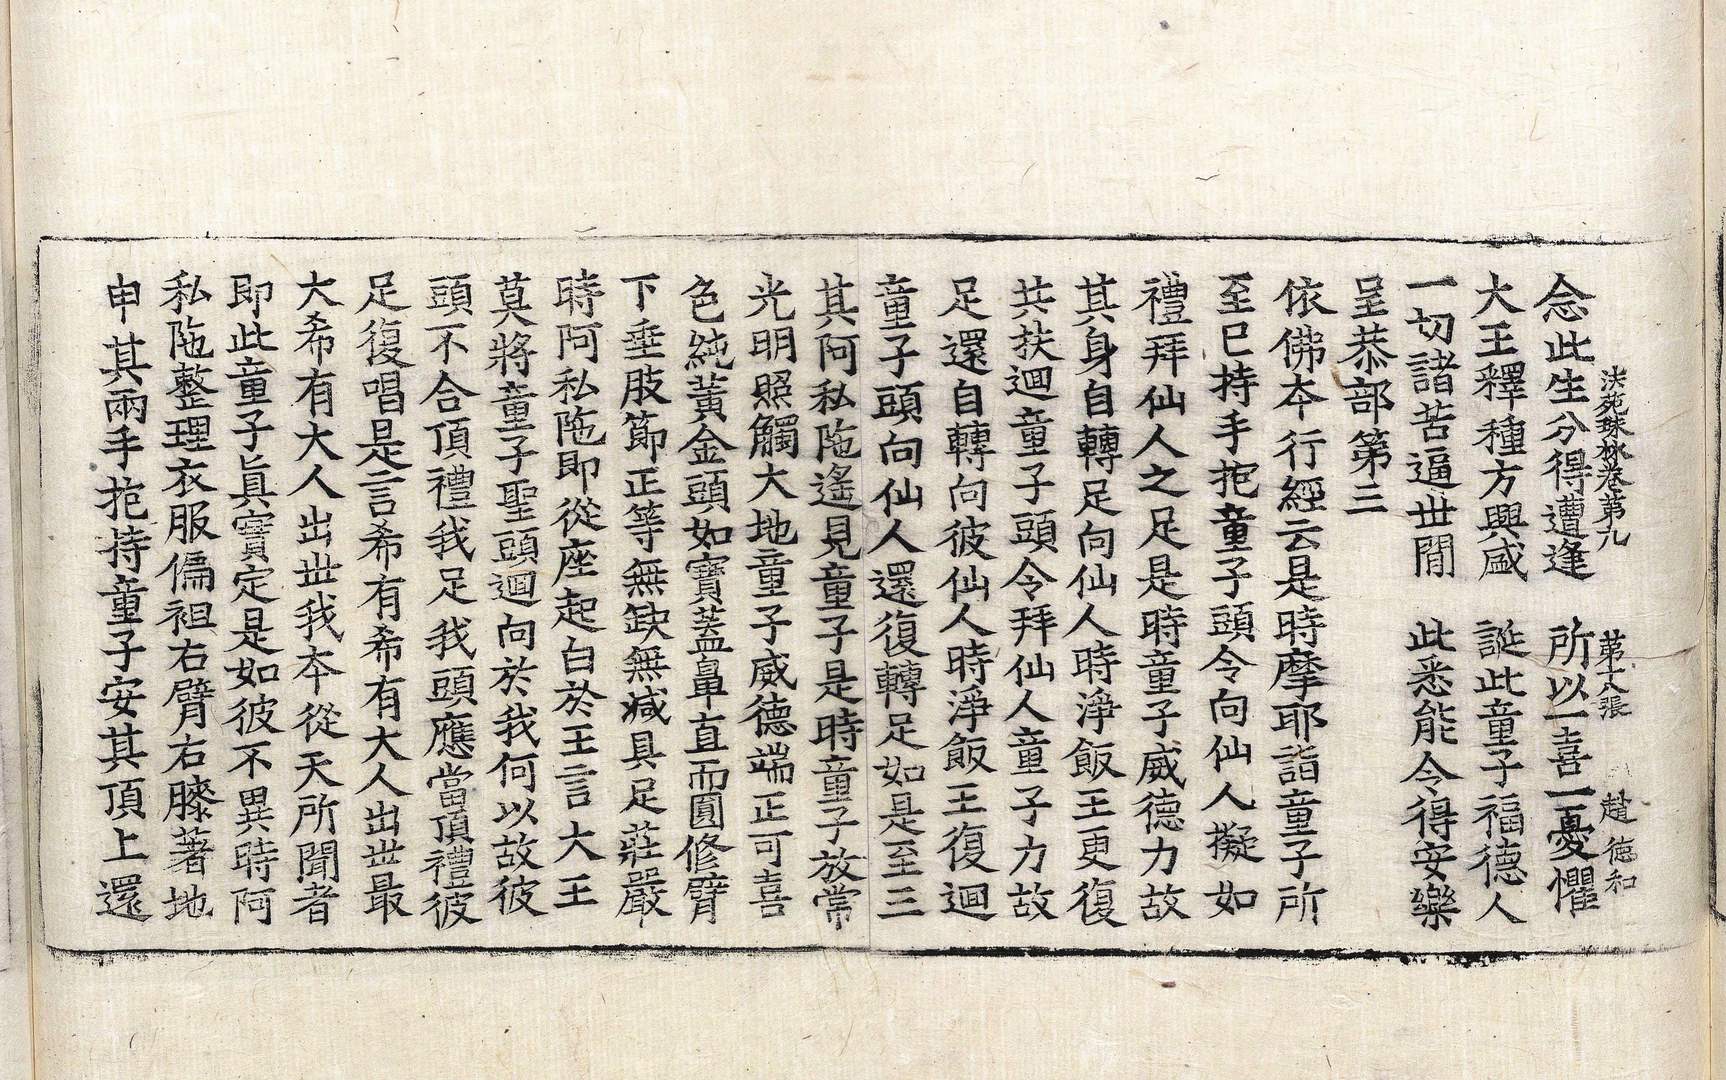 法苑珠林卷第九　第十八張　趙德和
念此生分得遭逢　所以一喜一憂懼
大王釋種方興盛　誕此童子福德人
一切諸苦逼世間　此悉能令得安樂
呈恭部第三
依佛本行經云是時摩耶詣童子所
至已持手抱童子頭令向仙人擬如
禮拜仙人之足是時童子威德力故
其身自轉足向仙人時淨飯王更復
共扶迴童子頭令拜仙人童子力故
足還自轉向彼仙人時淨飯王復迴
童子頭向仙人還復轉足如是至三
其阿私陁遙見童子是時童子放常
光明照觸大地童子威德端正可喜
色純黃金頭如寶蓋鼻直而圓修臂
下垂肢節正等無缺無減具足莊嚴
時阿私陁即從座起白於王言大王
莫將童子聖頭迴向於我何以故彼
頭不合頂禮我足我頭應當頂禮彼
足復唱是言希有希有大人出世最
大希有大人出世我本從天所聞者
即此童子眞實定是如彼不異時阿
私陁整理衣服偏袒右臂右膝著地
申其兩手抱持童子安其頂上還